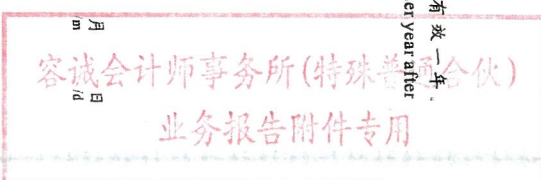 有效一年。
er year after
月 日
/m /d
容诚会计师事务所(特殊普通合伙)
业务报告附件专用